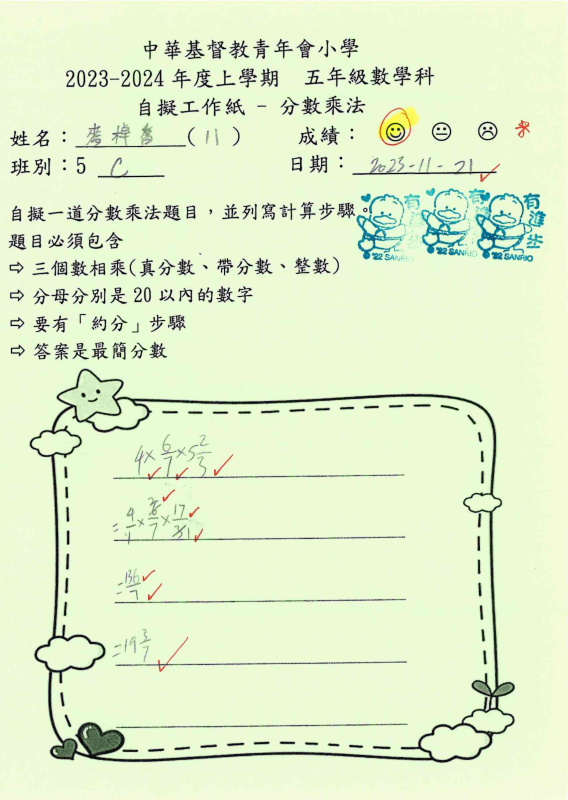 中華基督教青年會小學
2023-2024 年度上學期 五年級數學科
自擬工作紙 – 分數乘法
姓名： ( 11 ) 成績：
班別：5 C 日期： 2023-11-21
自擬一道分數乘法題目，並列寫計算步驟。
題目必須包含
⇨ 三個數相乘(真分數、帶分數、整數)
⇨ 分母分別是 20 以內的數字
⇨ 要有「約分」步驟
⇨ 答案是最簡分數
有進步
有進步
©'22 SANRIO
©'22 SANRIO
©'22 SANRIO
4×6/7×5 2/3
=4/1×6 2/7×17/3 1
=136/7
=19 3/7